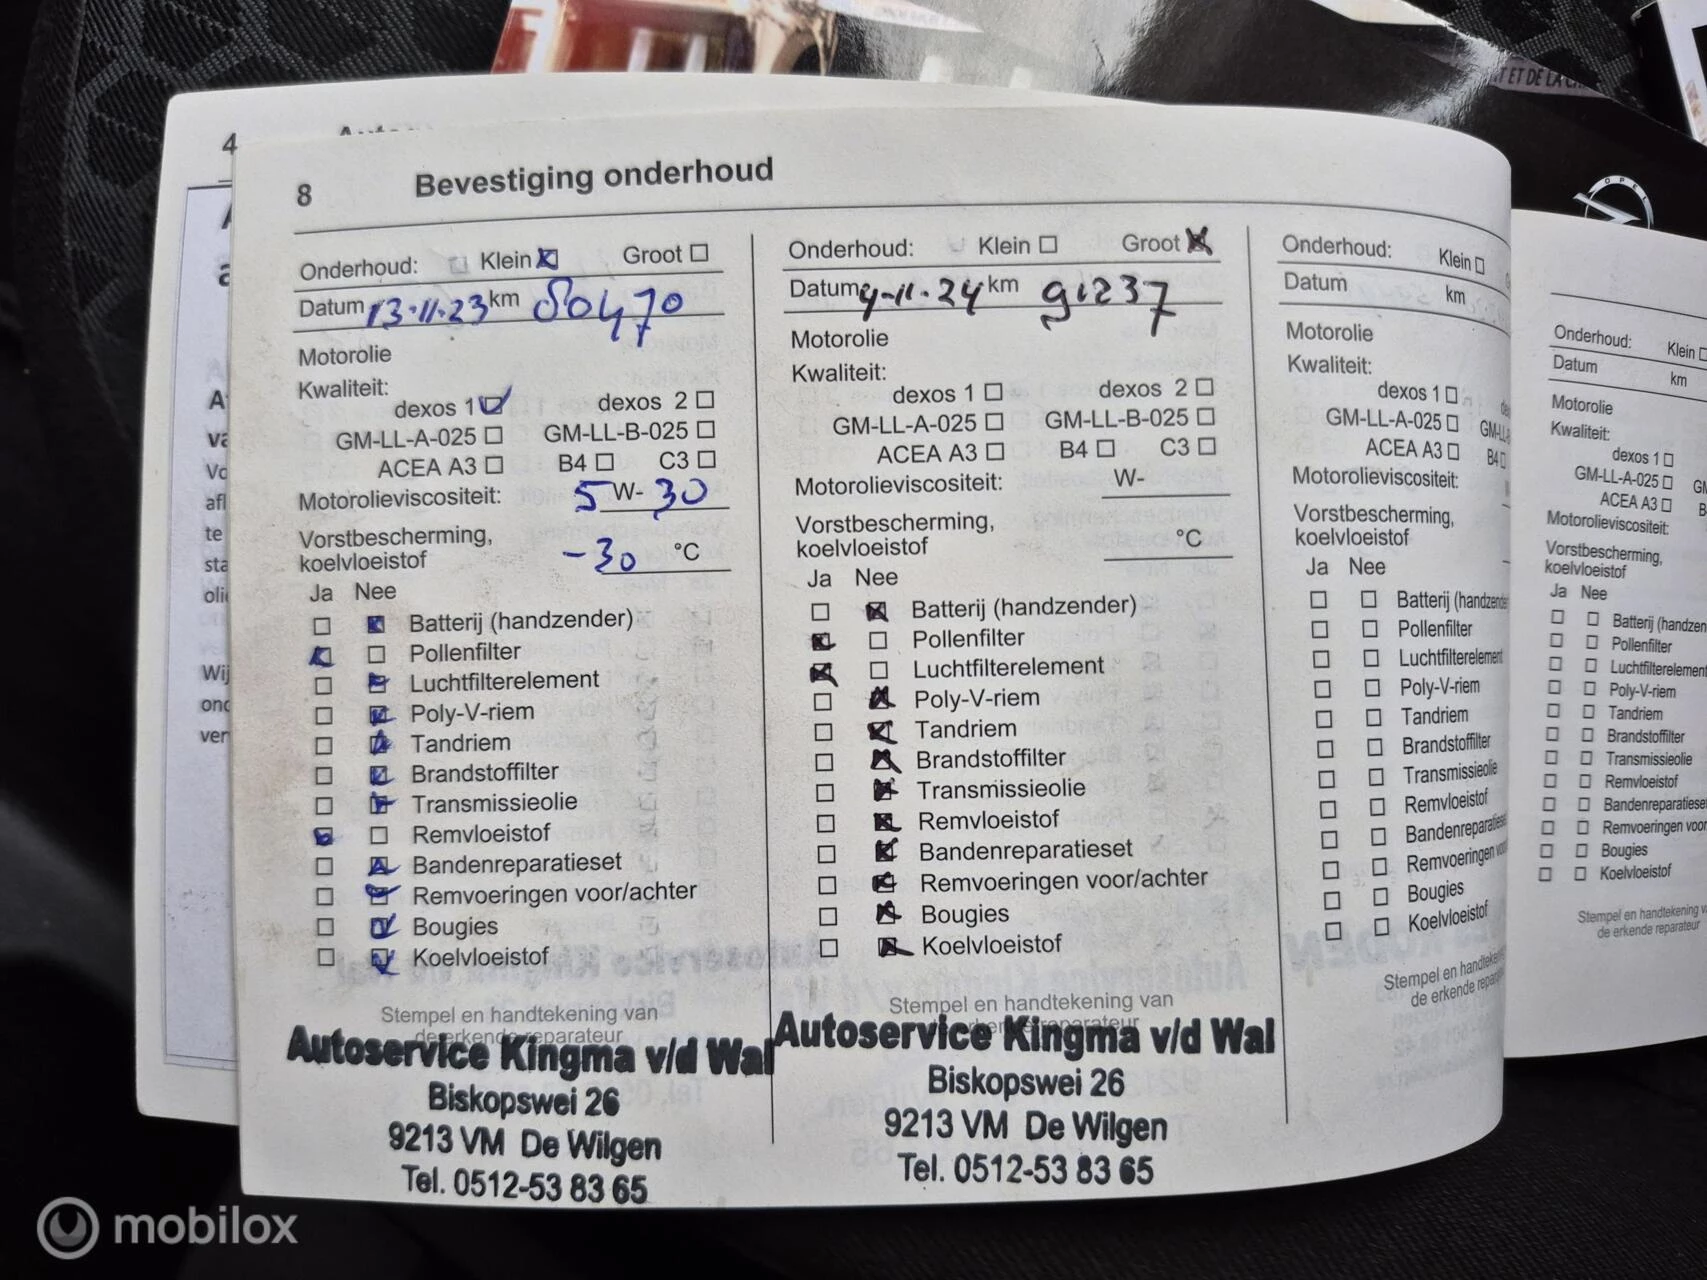 T ET DE LA
OPEL
4
8 Bevestiging onderhoud
Onderhoud: Klein Groot
Datum 13-11-23 km 80470
Motorolie
Kwaliteit:
dexos 1 dexos 2
GM-LL-A-025 GM-LL-B-025
ACEA A3 B4 C3
Motorolieviscositeit: 5 W- 30
Vorstbescherming,
koelvloeistof -30 °C
Ja Nee
Batterij (handzender)
Pollenfilter
Luchtfilterelement
Poly-V-riem
Tandriem
Brandstoffilter
Transmissieolie
Remvloeistof
Bandenreparatieset
Remvoeringen voor/achter
Bougies
Koelvloeistof
Stempel en handtekening van
de erkende reparateur
Autoservice Kingma v/d Wal
Biskopswei 26
9213 VM De Wilgen
Tel. 0512-53 83 65
Onderhoud: Klein Groot
Datum 4-11-24 km 91237
Motorolie
Kwaliteit:
dexos 1 dexos 2
GM-LL-A-025 GM-LL-B-025
ACEA A3 B4 C3
Motorolieviscositeit: W-
Vorstbescherming,
koelvloeistof °C
Ja Nee
Batterij (handzender)
Pollenfilter
Luchtfilterelement
Poly-V-riem
Tandriem
Brandstoffilter
Transmissieolie
Remvloeistof
Bandenreparatieset
Remvoeringen voor/achter
Bougies
Koelvloeistof
Stempel en handtekening van
de erkende reparateur
Autoservice Kingma v/d Wal
Biskopswei 26
9213 VM De Wilgen
Tel. 0512-53 83 65
Onderhoud: Klein
Datum km
Motorolie
Kwaliteit:
dexos 1
GM-LL-A-025 GM-LL
ACEA A3 B4
Motorolieviscositeit:
Vorstbescherming,
koelvloeistof
Ja Nee
Batterij (handzende
Pollenfilter
Luchtfilterelement
Poly-V-riem
Tandriem
Brandstoffilter
Transmissieolie
Remvloeistof
Bandenreparatiese
Remvoeringen voor
Bougies
Koelvloeistof
Stempel en handteken
de erkende reparat
Onderhoud: Klein
Datum km
Motorolie
Kwaliteit:
dexos 1
GM-LL-A-025 GM
ACEA A3 B
Motorolieviscositeit:
Vorstbescherming,
koelvloeistof
Ja Nee
Batterij (handzen
Pollenfilter
Luchtfilterelement
Poly-V-riem
Tandriem
Brandstoffilter
Transmissieolie
Remvloeistof
Bandenreparatiese
Remvoeringen voor
Bougies
Koelvloeistof
Stempel en handtekening v
de erkende reparateur
mobilox